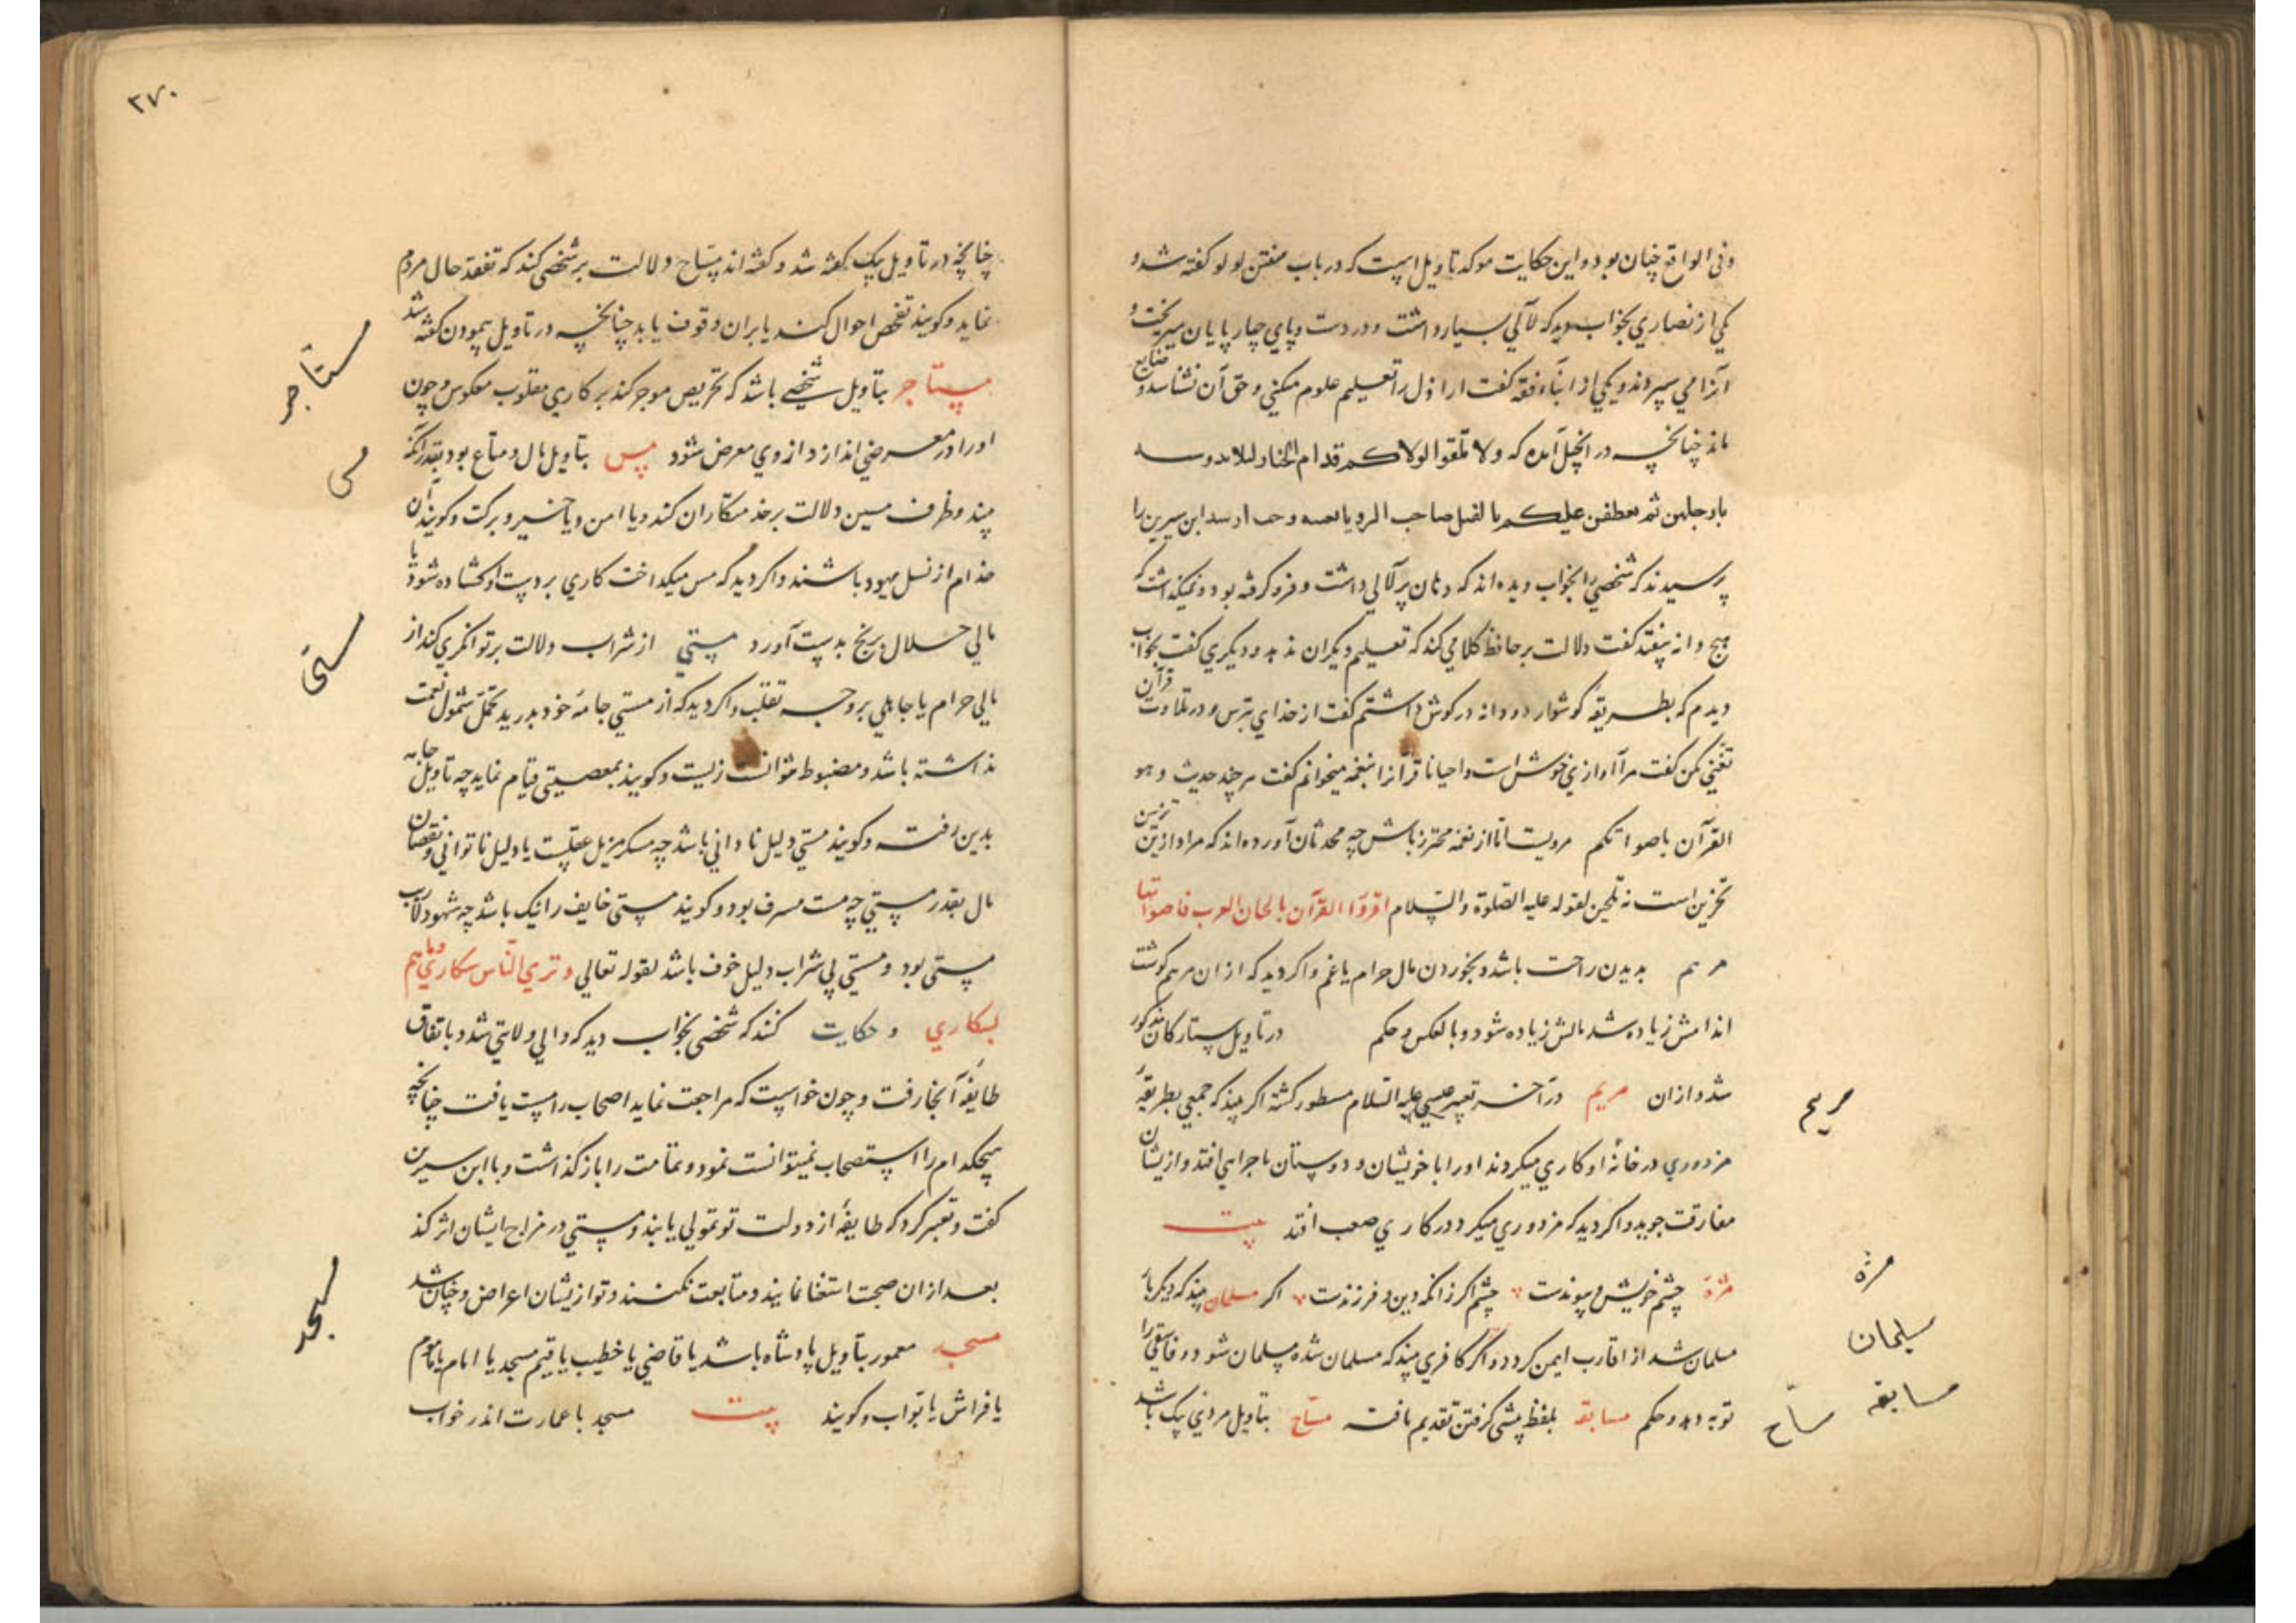 وفی الواقع چنان بود و این حکایت موکد تاویل است که در باب سفتن لولو کفته شد و
یکی از نصاری بخواب دید که لآلی بسیار داشت و در دست و پای چارپایان میریخت و
آنرا می سپردند و یکی از ابناء فقه کفت اراذل را تعلیم علوم میکنی و حق آن نشناسد و ضایع
ماند چنانچه در انجیل آمده که ولا تلقوا لولاکم قدام الخنازیر
بارجلهن ثم عطفن علیکم بالقبل صاحب الرویا ابن سیرین را
پرسیدند که شخصی را بخواب دیده اند که دهان پر لآلی داشت و فرو کرفته بود و نمیکذاشت که
هیچ دانه بیفتد کفت دلالت بر حافظ کلامی کند که تعلیم دیکران ندهد و دیکری کفت بخواب
دیدم که بطریقه کوشوار دو دانه در کوش داشتم کفت از خدای بترس و در تلاوت قرآن
تغنی مکن کفت مرا آوازی خوش است و احیانا قرآنرا بنغمه میخوانم کفت هر چند حدیث
القرآن باصواتکم مرویست اما از نغمه محترز باش چه محدثان آورده اند که مراد ازین تزیین
تحزین است نه تلحین لقوله علیه الصلوة والسلام اقروا القرآن بالحان العرب فاصواتها
مرهم بدیدن راحت باشد و بخوردن مال حرام یا غم و اکر دید که از ان مرهم کوشت
اندامش زیاده شد مالش زیاده شود و بالعکس و حکم در تاویل ستارکان مذکور
شد و از ان مریم در آخر تعبیر عیسی علیه السلام مسطور کشته اکر بیند که جمعی بطریقه
مزدوری در خانه او کاری میکردند او را با خویشان و دوستان ماجرایی افتد و از یشان
مفارقت جوید و اکر دید که مزدوری میکرد در کاری صعب افتد بیت
مژه چشم خویش و پیوندست چشم اکر زانکه دین و فرزندست اکر مسلمان بیند که دیکر بار
مسلمان شد از اقارب ایمن کردد و اکر کافری بیند که مسلمان شده مسلمان شود و فاسقی را
توبه دهد و حکم مسابقه بلفظ پیشی کرفتن تقدیم یافت مساح بتاویل مردی پیک باشد
مریم
مژه
مسلمان
مسابقه
مساح
۲۷۰
چنانچه در تاویل پیک کفته شد و کفته اند مساح دلالت بر شخصی کند که تفقد حال مردم
نماید و کویند تفحص احوال کند یا بران وقوف یابد چنانچه در تاویل پیمودن کفته شد
مستاجر بتاویل شخصی باشد که تحریص موجر کند بر کاری مقلوب معکوس و چون
او را در معرضی اندازد از وی معرض شود مس بتاویل مال و متاع بود بقدر آنکه
بیند و ظرف مسین دلالت بر خدمتکاران کند و یا امن و یا خیر و برکت و کویند آن
خدام از نسل یهود باشند و اکر دید که مس میکداخت کاری بر دست او کشاده شود یا
مالی حلال برنج بدست آورد مستی از شراب دلالت بر توانکری کند از
مالی حرام یا جاهلی بر وجه تقلب و اکر دید که از مستی جامه خود بدرید تحمل شمول نعمت
نداشته باشد و مضبوط نتوانست زیست و کویند بمعصیتی قیام نماید چه تاویل جامه
بدین رفت و کویند مستی دلیل نادانی باشد چه مسکر مزیل عقلست یا دلیل ناتوانی و نقصان
مال بقدر مستی چه مست مسرف بود و کویند مستی خایف را نیک باشد چه شهود لازب
مستی بود و مستی بی شراب دلیل خوف باشد لقوله تعالی و تری الناس سکاری وما هم
بسکاری و حکایت کنند که شخصی بخواب دید که والی ولایتی شد و باتفاق
طایفه آنجا رفت و چون خواست که مراجعت نماید اصحاب را مست یافت چنانچه
هیچکدام را استصحاب نمیتوانست نمود و تمامت را باز کذاشت و با ابن سیرین
کفت و تعبیر کرد که طایفه از دولت تو تمولی یابند و مستی در مزاج ایشان اثر کند
بعد از ان صحبت استغنا نمایند و متابعت نکنند و تو از یشان اعراض و چنان شد
مسجد معمور بتاویل پادشاه باشد یا قاضی یا خطیب یا قیم مسجد یا امام یا ماموم
یا فراش یا بواب و کویند بیت مسجد با عمارت اندر خواب
مستاجر
مس
مستی
مسجد